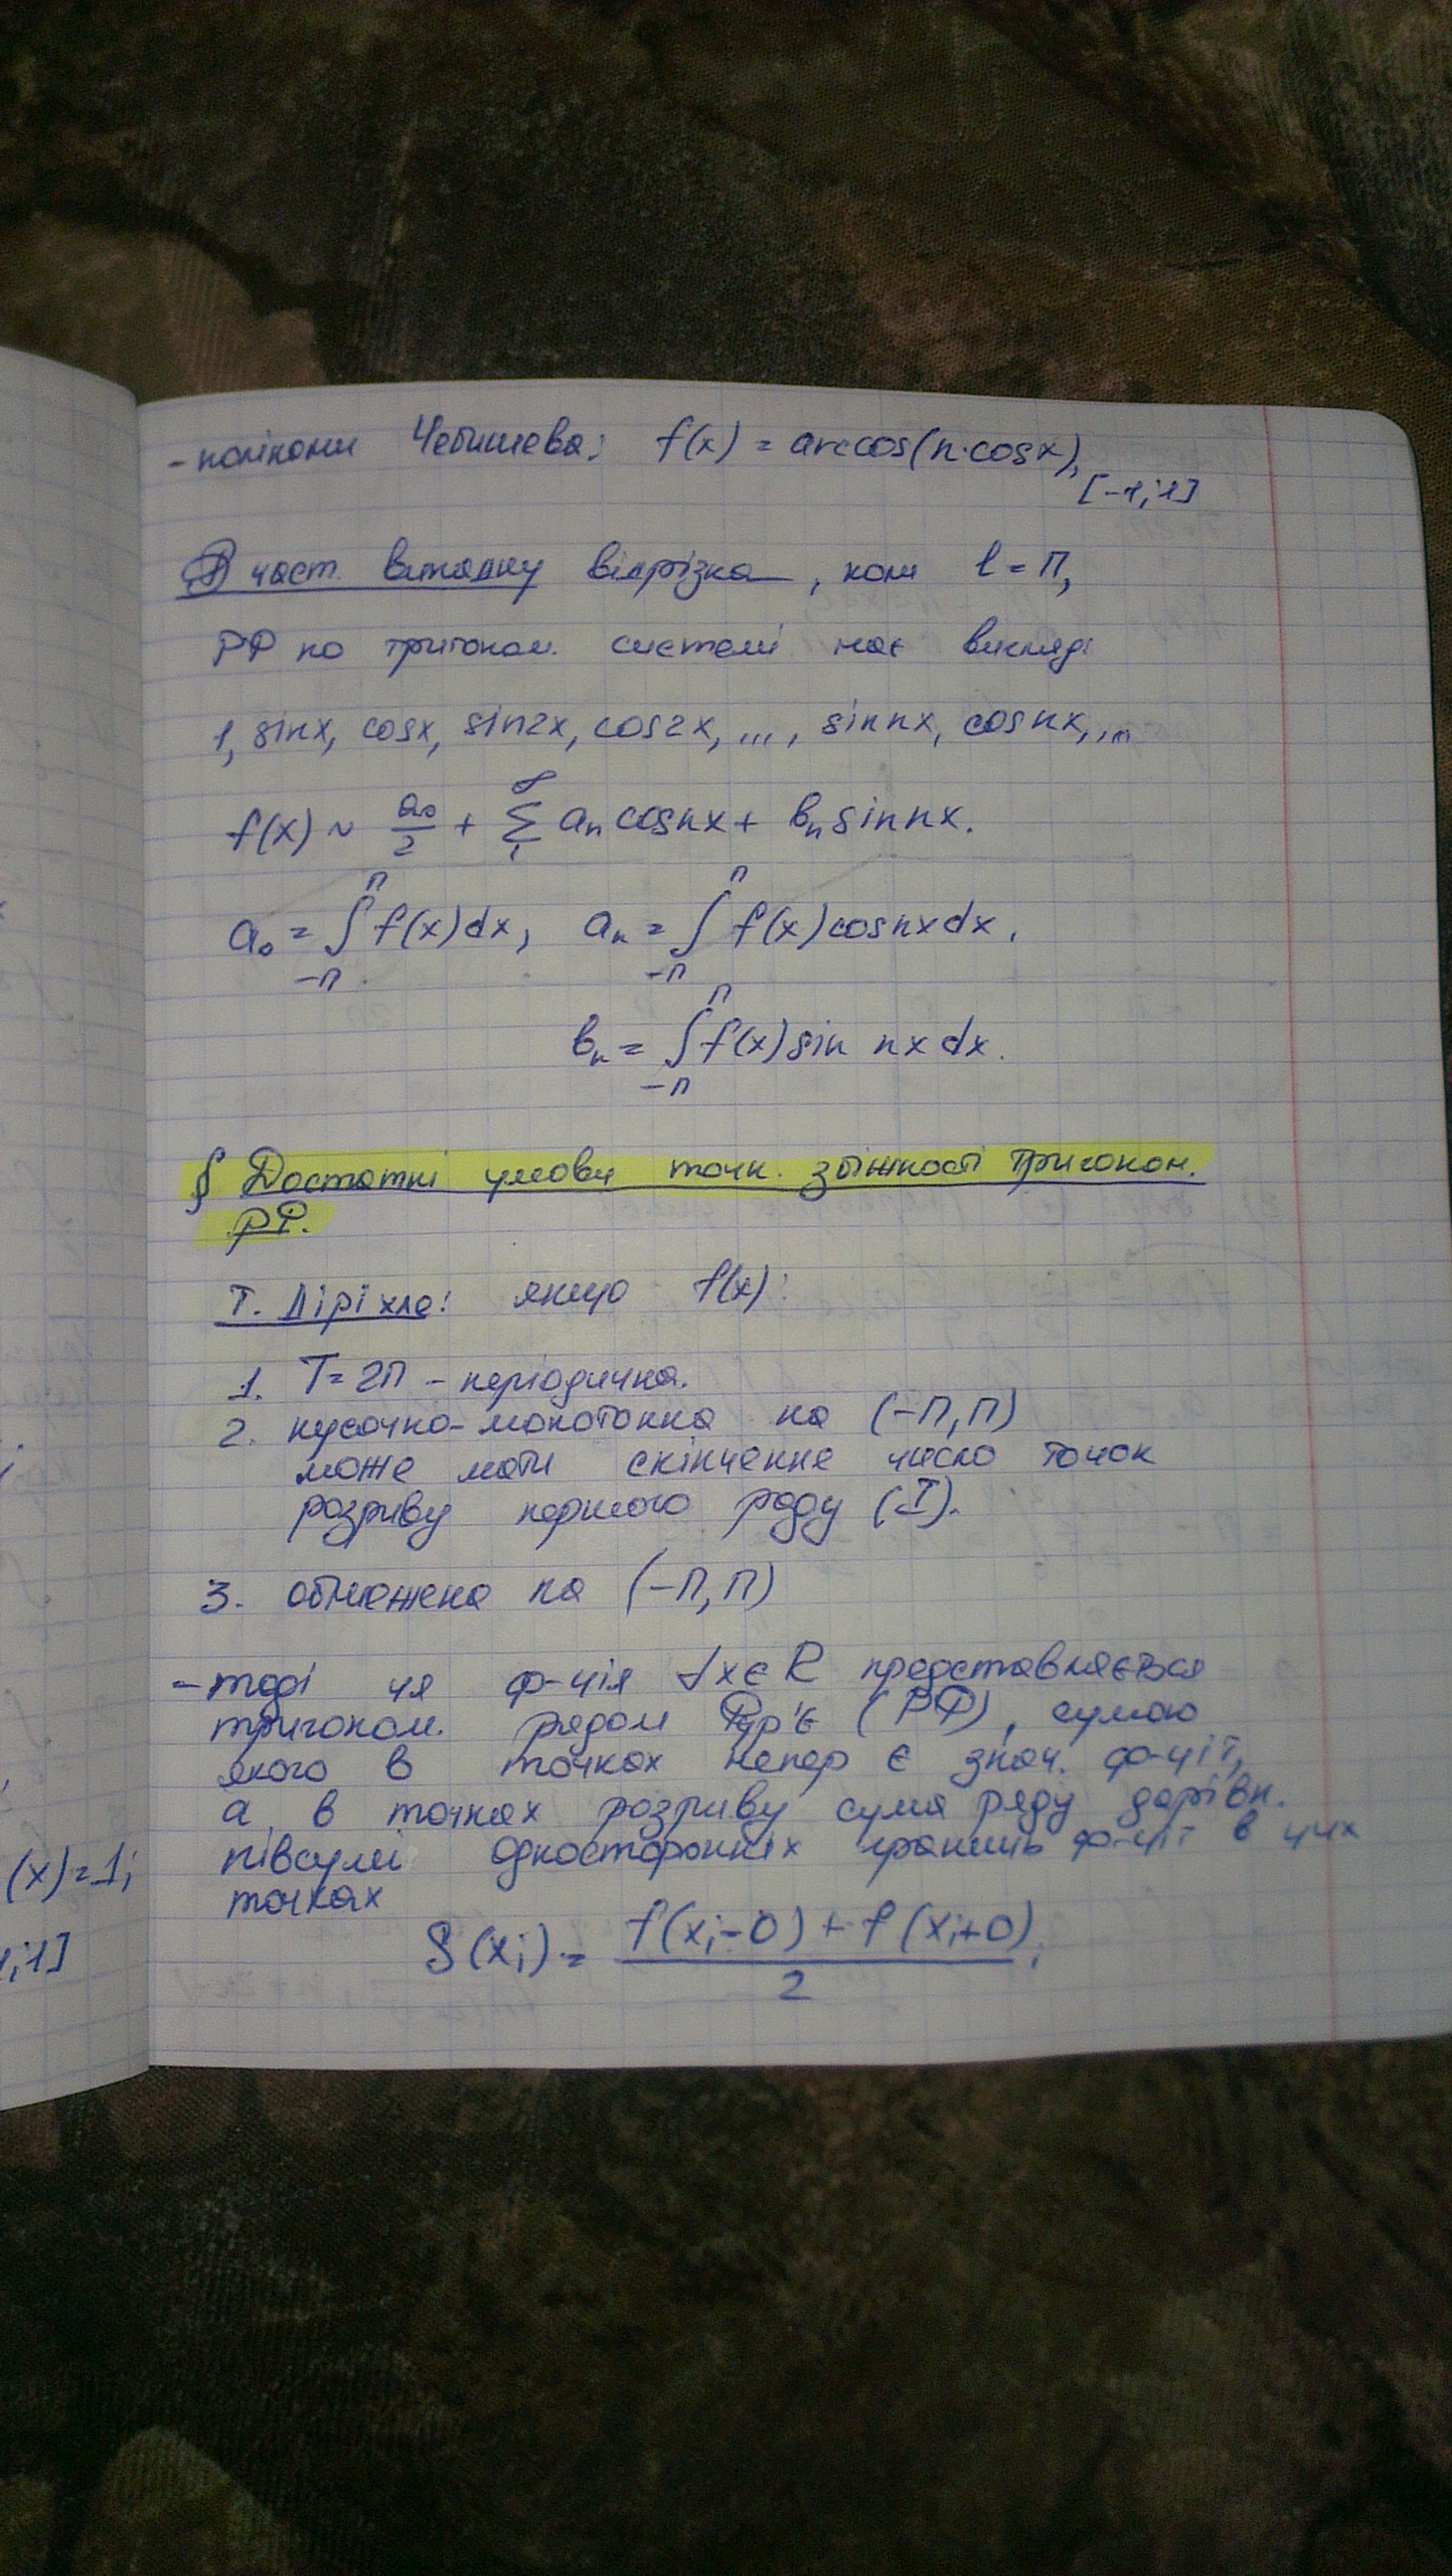 - поліноми Чебишева: f(x) = arccos(n·cosx),
[-1;1]
В част. випадку відрізка, коли l = π,
РФ по тригоном. системі має вигляд:
1, sinx, cosx, sin2x, cos2x, ..., sin nx, cos nx, ...
f(x) ~ a₀/2 + ∑₁^∞ aₙ cos nx + bₙ sin nx.
a₀ = ∫_{-π}^{π} f(x)dx, aₙ = ∫_{-π}^{π} f(x)cos nx dx,
bₙ = ∫_{-π}^{π} f(x) sin nx dx.
§ Достатні умови точк. збіжності тригоном.
РФ.
Т. Діріхле: якщо f(x):
1. T = 2π - періодична.
2. кусочно-монотонна на (-π, π)
може мати скінченне число точок
розриву першого роду (I).
3. обмежена на (-π, π)
- тоді ця ф-ція ∀x∈R представляється
тригоном. рядом Фур'є (РФ), сумою
якого в точках непер є знач. ф-ції,
а в точках розриву сума ряду дорівн.
півсумі односторонніх границь ф-ції в цих
точках
S(xᵢ) = (f(xᵢ-0) + f(xᵢ+0))/2.
(x)=1;
;1]